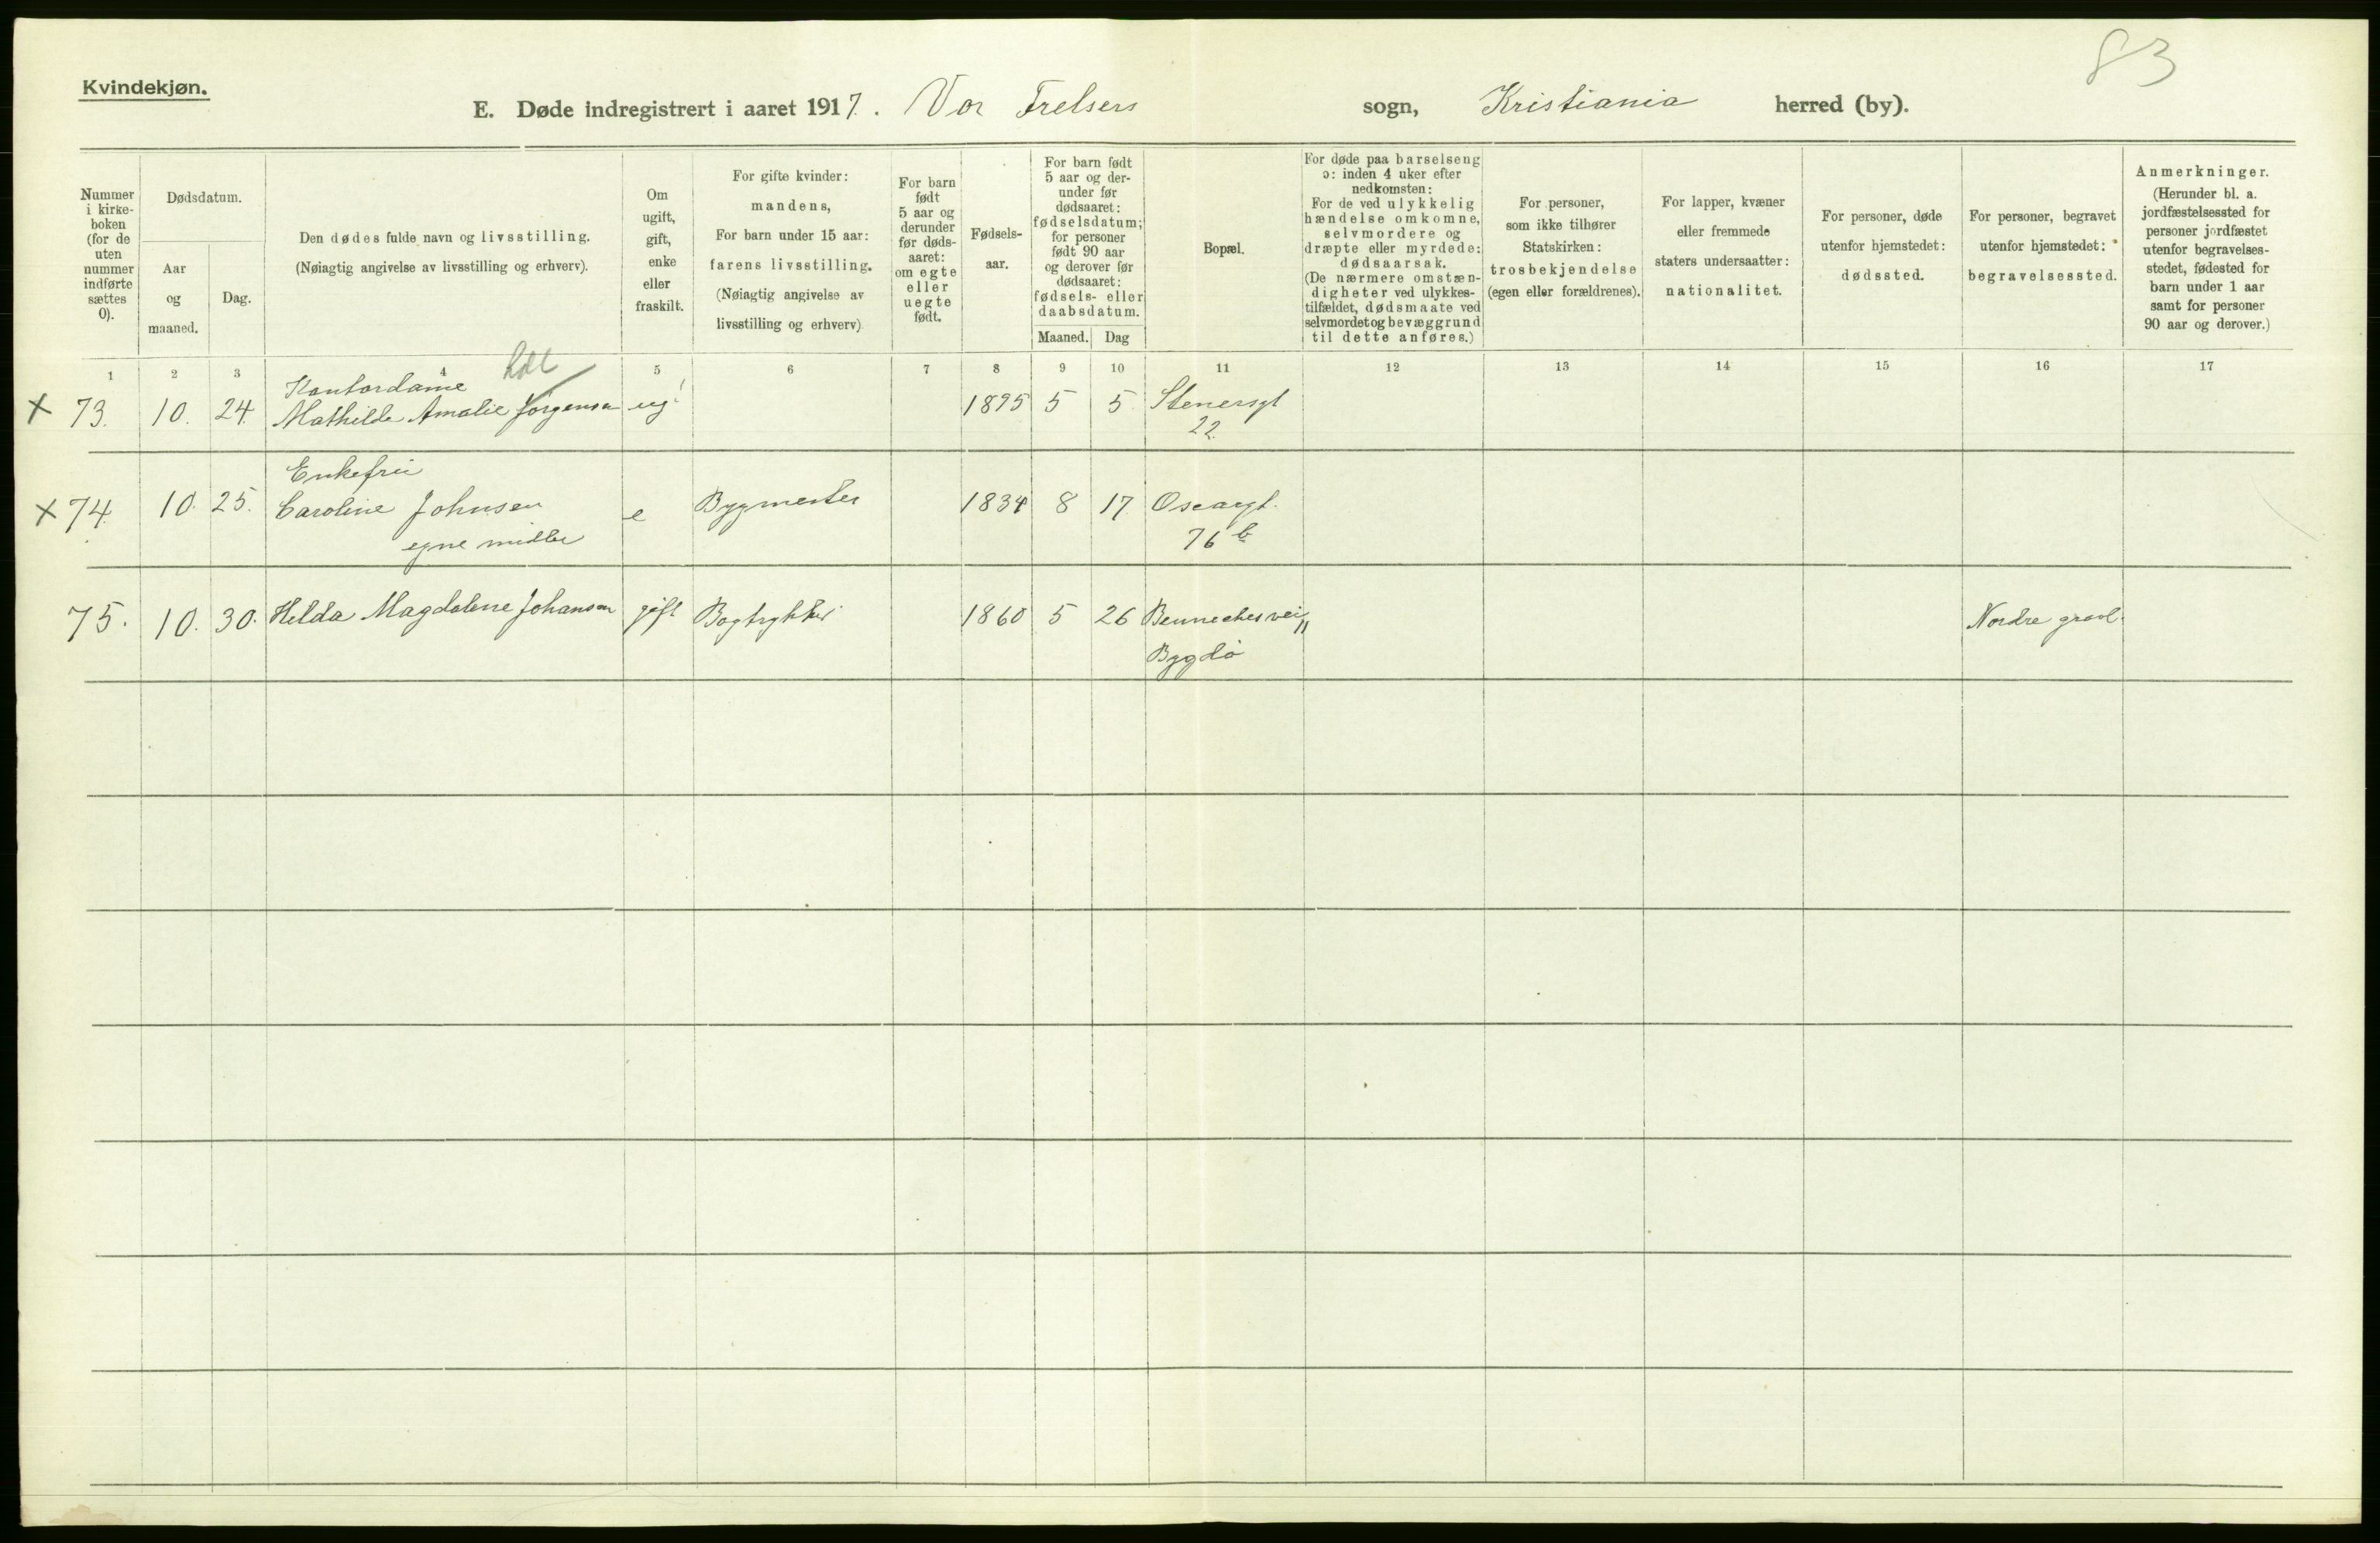 83
Kvindekjøn.
E. Døde indregistrert i aaret 1917. Vor Frelsers sogn, Kristiania herred (by).
Nummer i kirke-
boken
(for de
uten
nummer
indførte
sættes
0).
Dødsdatum.
Aar
og
maaned.
Dag.
Den dødes fulde navn og livsstilling.
(Nøiagtig angivelse av livsstilling og erhverv).
Om
ugift,
gift,
enke
eller
fraskilt.
For gifte kvinder:
mandens,
For barn under 15 aar:
farens livsstilling.
(Nøiagtig angivelse av
livsstilling og erhverv)
For barn
født
5 aar og
derunder
før døds-
aaret:
om egte
eller
uegte
født.
Fødsels-
aar.
For barn født
5 aar og der-
under før
dødsaaret:
fødselsdatum;
for personer
født 90 aar
og derover før
dødsaaret:
fødsels- eller
daabsdatum.
Maaned. Dag
Bopæl.
For døde paa barselseng
ɔ: inden 4 uker efter
nedkomsten:
For de ved ulykkelig
hændelse omkomne,
selvmordere og
dræpte eller myrdede:
dødsaarsak.
(De nærmere omstæn-
digheter ved ulykkes-
tilfældet, dødsmaate ved
selvmordet og bevæggrund
til dette anføres.)
For personer,
som ikke tilhører
Statskirken:
trosbekjendelse
(egen eller forældrenes).
For lapper, kvæner
eller fremmede
staters undersaatter:
nationalitet.
For personer, døde
utenfor hjemstedet:
dødssted.
For personer, begravet
utenfor hjemstedet:
begravelsessted.
Anmerkninger.
(Herunder bl. a.
jordfæstelsessted for
personer jordfæstet
utenfor begravelses-
stedet, fødested for
barn under 1 aar
samt for personer
90 aar og derover.)
1 2 3 4 5 6 7 8 9 10 11 12 13 14 15 16 17
Kontordame
x 73. 10. 24. Mathilde Amalie Jörgensen ug. 1895 5 5 Stenersgt
22.
Enkefru
x 74. 10. 25. Caroline Johnsen e Bygmester 1834 8 17 Oscargt.
egne midler 76 b
75. 10. 30. Helda Magdalene Johansen gift Bogtrykker 1860 5 26 Bennechesvei 11 Nordre gravl.
Bygdö